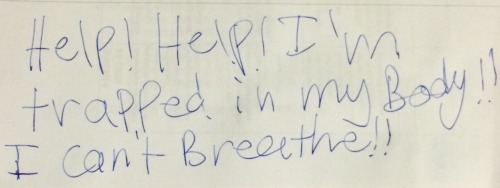 Help! Help! I'm
trapped in my Body!!
I can't Breathe!!